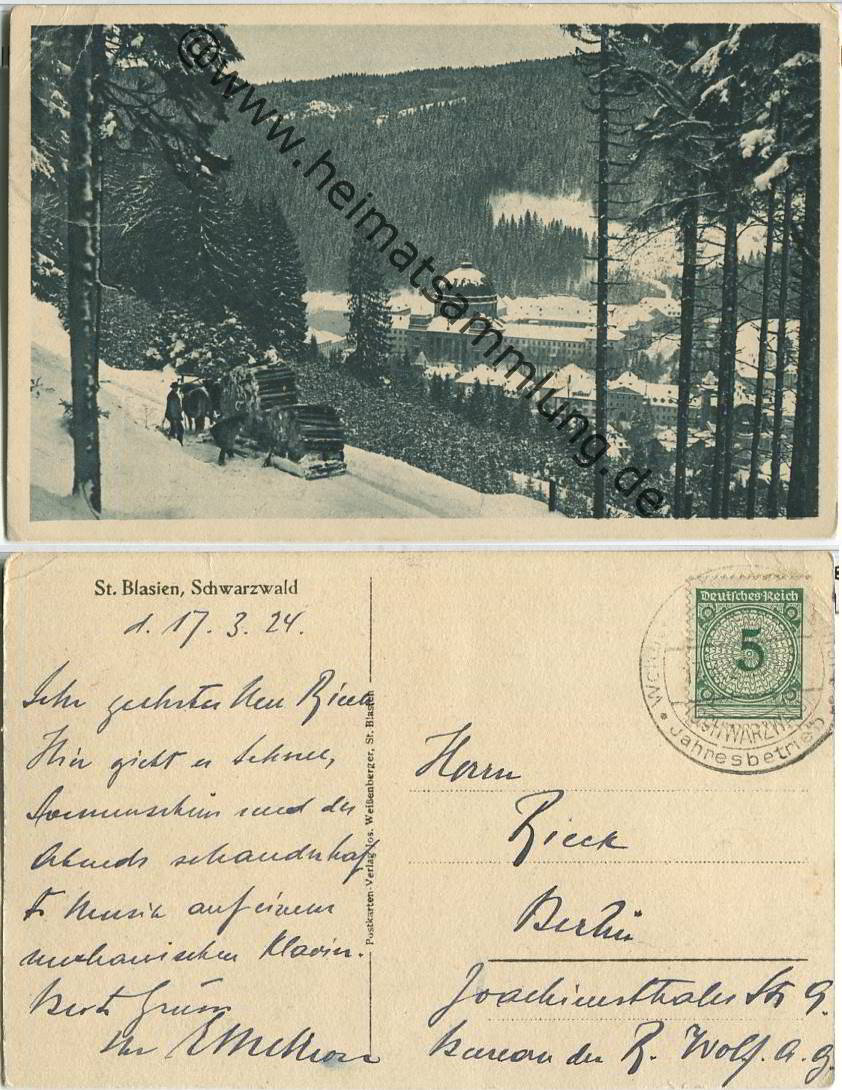 @www.heimatsammlung.de
St. Blasien, Schwarzwald
d. 17. 3. 24.
Sehr geehrter Herr Rieck
Hier giebt es Schnee,
Sonnenschein und des
Abends schauderhaf
te Musik auf einem
mechanischen Klavier.
Beste Grüsse
Ihr
Postkarten-Verlag Jos. Weißenberger, St. Blasien
Deutsches Reich
5
SCHWARZW
Jahresbetrieb
Herrn
Rieck
Berlin
Joachimsthaler Str 9.
Bureau der R. Wolf. A. G.